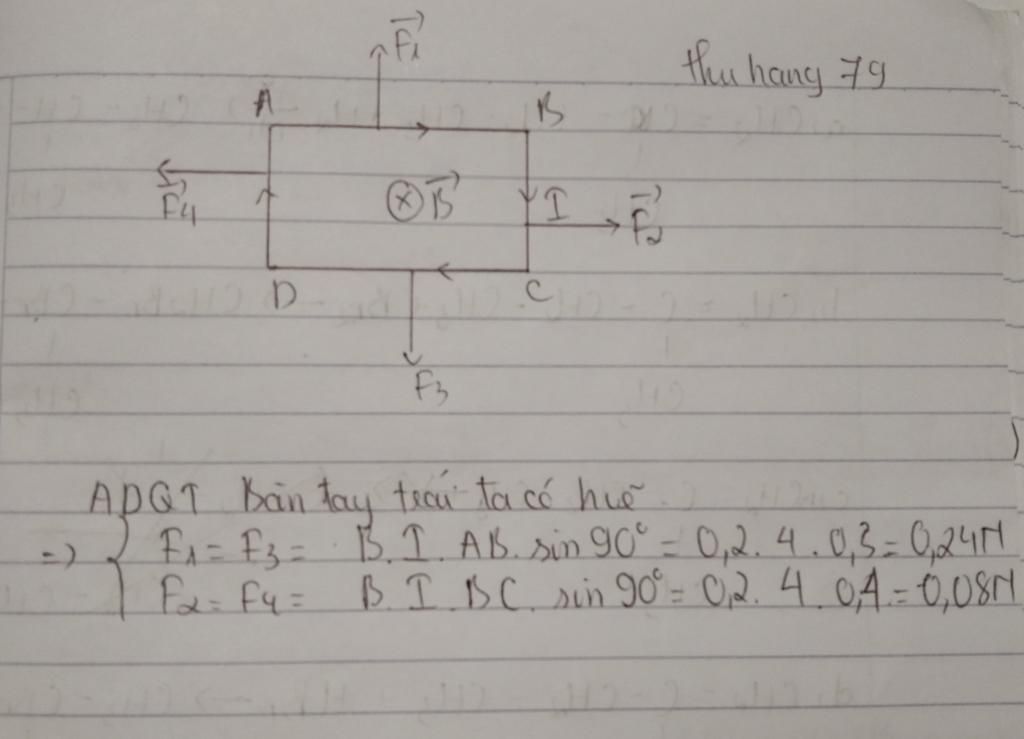 F₁
thu hang 79
A
B
F₄
⊗ B
I
F₂
D
C
F₃
ADQT Bàn tay trái ta có hvẽ
=> { F₁ = F₃ = B. I. AB. sin 90° = 0,2. 4. 0,3 = 0,24N
F₂ = F₄ = B. I. BC. sin 90° = 0,2. 4. 0,1 = 0,08N